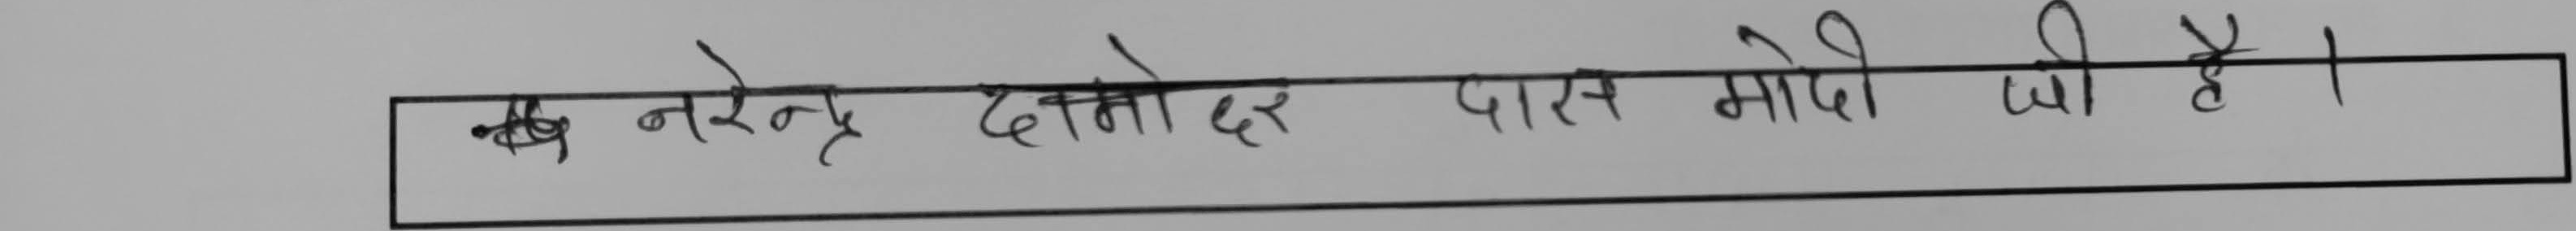 नरेन्द्र दामोदर दास मोदी जी है ।